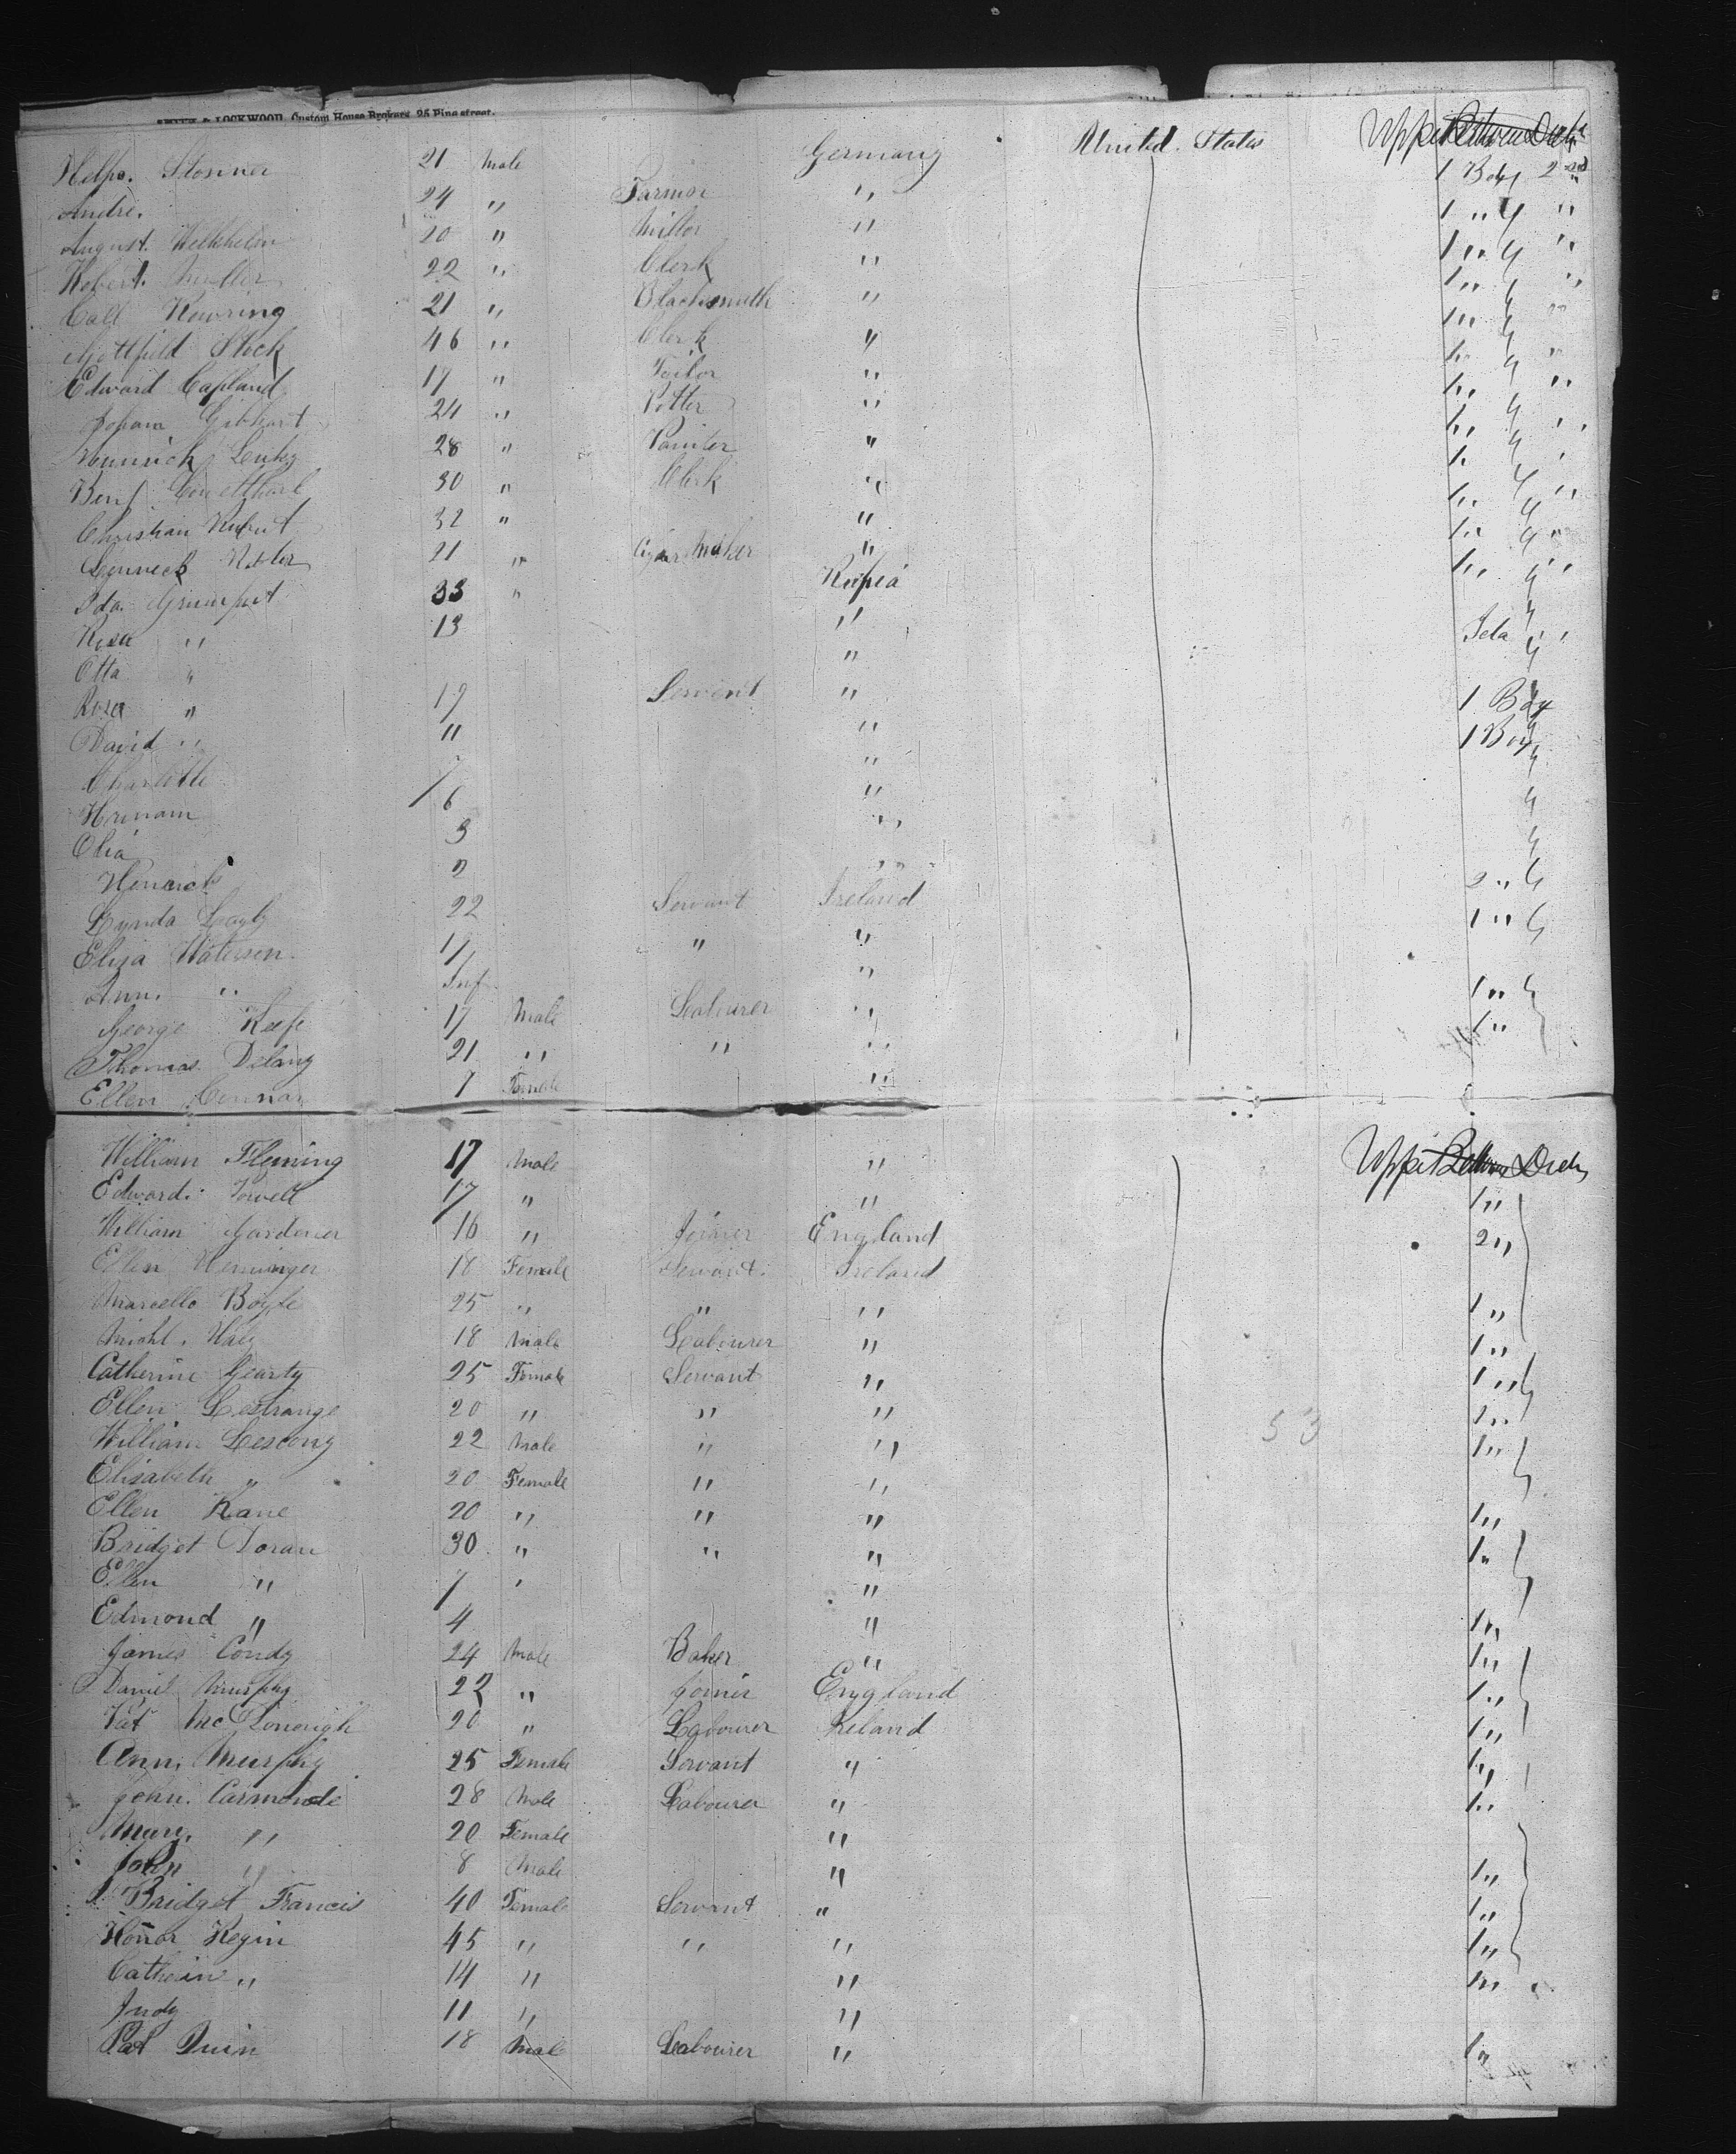 SMITH & LOCKWOOD, Custom House Brokers, 25 Pine street.
Helpe. Stonner 21 Male Germany United States Upper Between Decks 1 Box 2nd
Andre. 24 " Farmer " 1 " "
August. Welhhelm 20 " Miller " 1 " "
Robert. Muller 22 " Clerk " 1 " "
Call Howring 21 " Blacksmith " 1 " "
Gottfield Stock 46 " Clerk " 1 " "
Edward Capland 17 " Tailor " 1 " "
24 " Potter " 1 " "
28 " Painter " 1 "
30 " Clerk " 1 " "
Christian 32 " " 1 " "
21 " Cigar Maker " 1 " "
Ida 33 " Rußia
Rosa " 13 " Ida "
Otta " "
Rosa " 19 Servant " 1 Box
David " 11 " 1 Box
Charlotte 7 "
Hermam 6 "
Olia 3 "
2 " 2 "
22 Servant Ireland 1 "
Eliza Waterson 19 " "
Ann. " Inf " 1 "
George Keefe 17 Male Labourer " 1 "
Thomas Delany 21 " " "
Ellen 7 Female "
William Fleming 17 Male " Upper Between Decks
Edward 17 " " 1 "
William Gardener 16 " Joiner England 2 "
Ellen 18 Female Servant Ireland
Marcella Boyle 25 " " " 1 "
Michl. Haly 18 Male Labourer " 1 "
Catherine Gearty 25 Female Servant " 1 "
Ellen Lestrange 20 " " " 1 "
William Lescony 22 Male " " 53 1 "
Elisabeth " 20 Female " "
Ellen Kane 20 " " " 1 "
Bridget Doran 30 " " " 1 "
Ellen " 7 " "
Edmond " 4 " 1 "
James Condy 24 Male Baker " 1 "
Daniel Murphy 22 " Joiner England 1 "
Pat 20 " Labourer Ireland 1 "
Ann. Murphy 25 Female Servant " 1 "
John. Carmonde 28 Male Labourer " 1 "
Mary. " 20 Female "
John " 8 Male " 1 "
Bridget Francis 40 Female Servant " 1 "
Honor Regin 45 " " " 1 "
Catherin " 14 " " 1 "
Judy 11 " "
Pat Quin 18 Male Labourer " 1 "